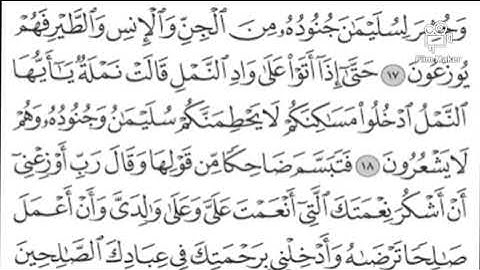 وَحُشِرَ لِسُلَيْمَٰنَ جُنُودُهُۥ مِنَ ٱلْجِنِّ وَٱلْإِنسِ وَٱلطَّيْرِ فَهُمْ
يُوزَعُونَ ١٧ حَتَّىٰٓ إِذَآ أَتَوْا۟ عَلَىٰ وَادِ ٱلنَّمْلِ قَالَتْ نَمْلَةٌ يَٰٓأَيُّهَا
ٱلنَّمْلُ ٱدْخُلُوا۟ مَسَٰكِنَكُمْ لَا يَحْطِمَنَّكُمْ سُلَيْمَٰنُ وَجُنُودُهُۥ وَهُمْ
لَا يَشْعُرُونَ ١٨ فَتَبَسَّمَ ضَاحِكًا مِّن قَوْلِهَا وَقَالَ رَبِّ أَوْزِعْنِىٓ
أَنْ أَشْكُرَ نِعْمَتَكَ ٱلَّتِىٓ أَنْعَمْتَ عَلَىَّ وَعَلَىٰ وَٰلِدَىَّ وَأَنْ أَعْمَلَ
صَٰلِحًا تَرْضَىٰهُ وَأَدْخِلْنِى بِرَحْمَتِكَ فِى عِبَادِكَ ٱلصَّٰلِحِينَ
FilmMaker